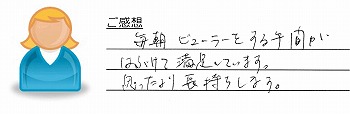 ご感想
毎朝 ビューラーをする手間が
はぶけて満足しています。
思ったより長持ちします。